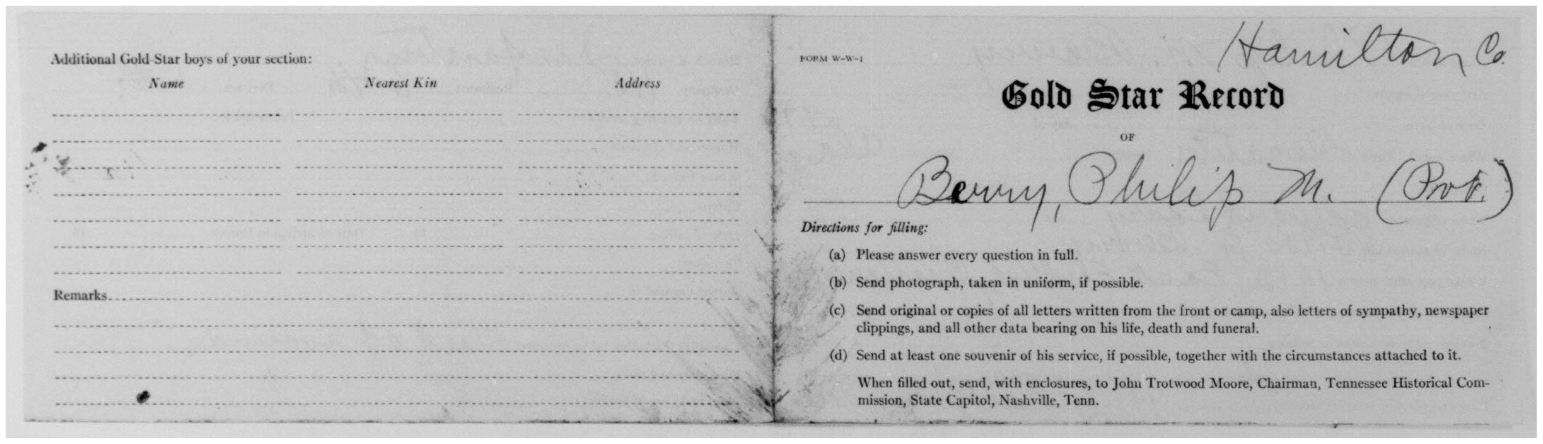 Additional Gold Star boys of your section:
Name Nearest Kin Address
Remarks
Hamilton Co.
FORM W-W-1
Gold Star Record
OF
Berry, Philip M. (Pvt.)
Directions for filling:
(a) Please answer every question in full.
(b) Send photograph, taken in uniform, if possible.
(c) Send original or copies of all letters written from the front or camp, also letters of sympathy, newspaper
clippings, and all other data bearing on his life, death and funeral.
(d) Send at least one souvenir of his service, if possible, together with the circumstances attached to it.
When filled out, send, with enclosures, to John Trotwood Moore, Chairman, Tennessee Historical Com-
mission, State Capitol, Nashville, Tenn.